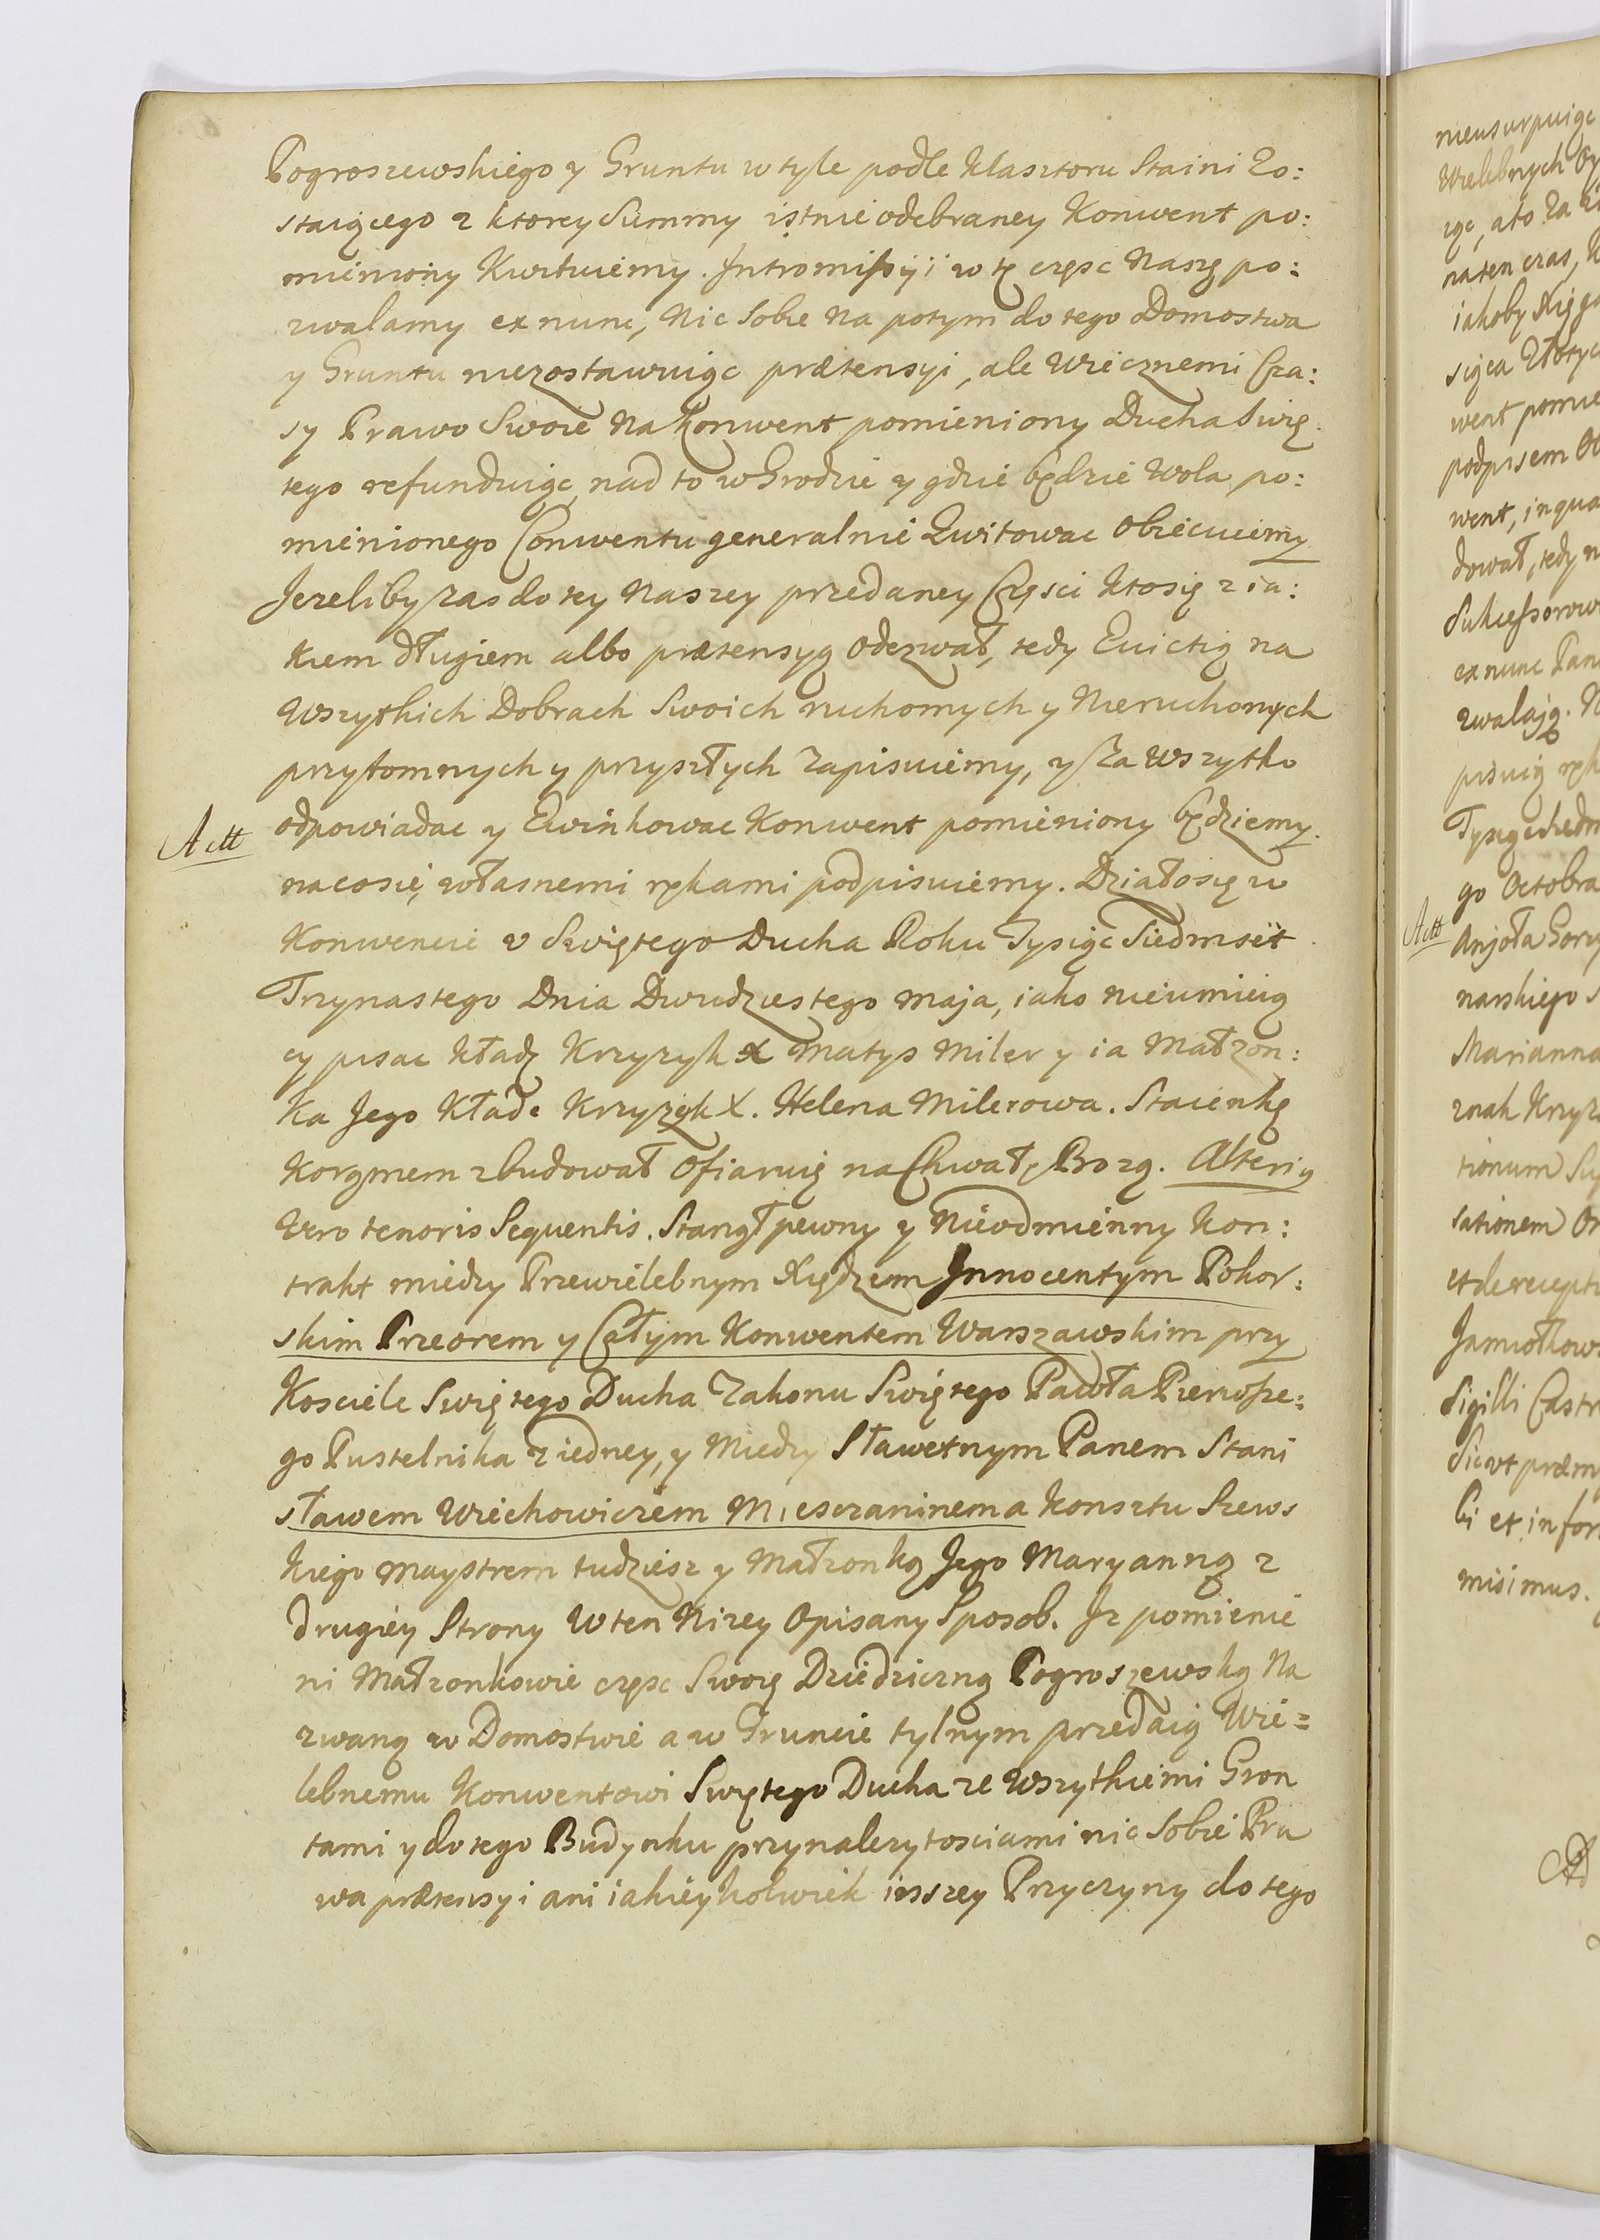 Pogroszewskiego y Gruntu w tyle podle Klasztoru Staini Zo:
staiącego z ktorey Summy istnie odebraney Konwent po:
mieniony Kwituiemy. Intromissyi w tę częsc Naszę po:
zwalamy ex nunc, Nic Sobie na potym do tego Domostwa
y Gruntu niezostawuiąc prætensyi, ale Wiecznemi Cza:
sy Prawo Swoie na Konwent pomieniony Ducha Swię
tego refunduiąc, nad to w Grodzie y gdzie będzie Wola po:
mienionego Conwentu generalnie Kwitowac Obiecuiemy
Jezeliby zas do tey Naszey przedaney Częsci Ktosię z ia:
kiem długiem albo prætensyą Odezwał, tedy Evictią na
Wszytkich Dobrach Swoich ruchomych y Nieruchomych
przytomnych y przyszłych Zapisuiemy, y Za Wszytko
Actt
odpowiadac y Ewinkowac Konwent pomieniony będziemy.
na co sie, własnemi rękami podpisuiemy. Działosię w
Konwencie v Swiętego Ducha Roku Tysiąc Siedmset
Trzynastego Dnia Dwudziestego Maja, iako nieumieią
cy pisac kładę Krzyzyk X Matys Miler y ia Małzon:
ka Jego Kładę Krzyzyk X. Helena Milerowa. Staienkę
Korzmem zbudował Ofiaruię na Chwałę Bozą. Alterius
Vero tenoris Sequentis. Stanął pewny y Nieodmienny Kon:
trakt miedzy Przewielebnym Xiędzem Innocentym Pokor:
skim Przeorem y Całym Konwentem Warszawskim przy
Kosciele Swiętego Ducha Zakonu Swiętego Pawła Pierwsze:
go Pustelnika z iedney, y Miedzy Sławetnym Panem Stani
sławem Wiechowiczem Miesczaninem a Konsztu Szews
kiego Maystrem tudziesz y Małzonką Jego Maryanną z
drugiey Strony W ten Nizey Opisany Sposob. Iz pomienie
ni Małzonkowie częsc Swoię Dziedziczną Pogroszewską Na
zwaną w Domostwie a w Gruncie tylnym przedaią Wie=
lebnemu Konwentowi Swętego Ducha ze Wszytkiemi Gron
tami y do tego Budynku przynalezytosciami nic Sobie Pra
wa prætensyi ani iakieykolwiek inszey Przyczyny do tego
nieusurpuiąc
Wielebnych Oy
na ten cras,
podpisem
ex nunc Pan
zwalają.
go Octobra
Actt
narskiego
Marianna
znak Krzyz
Sigilli Castr
misimus.